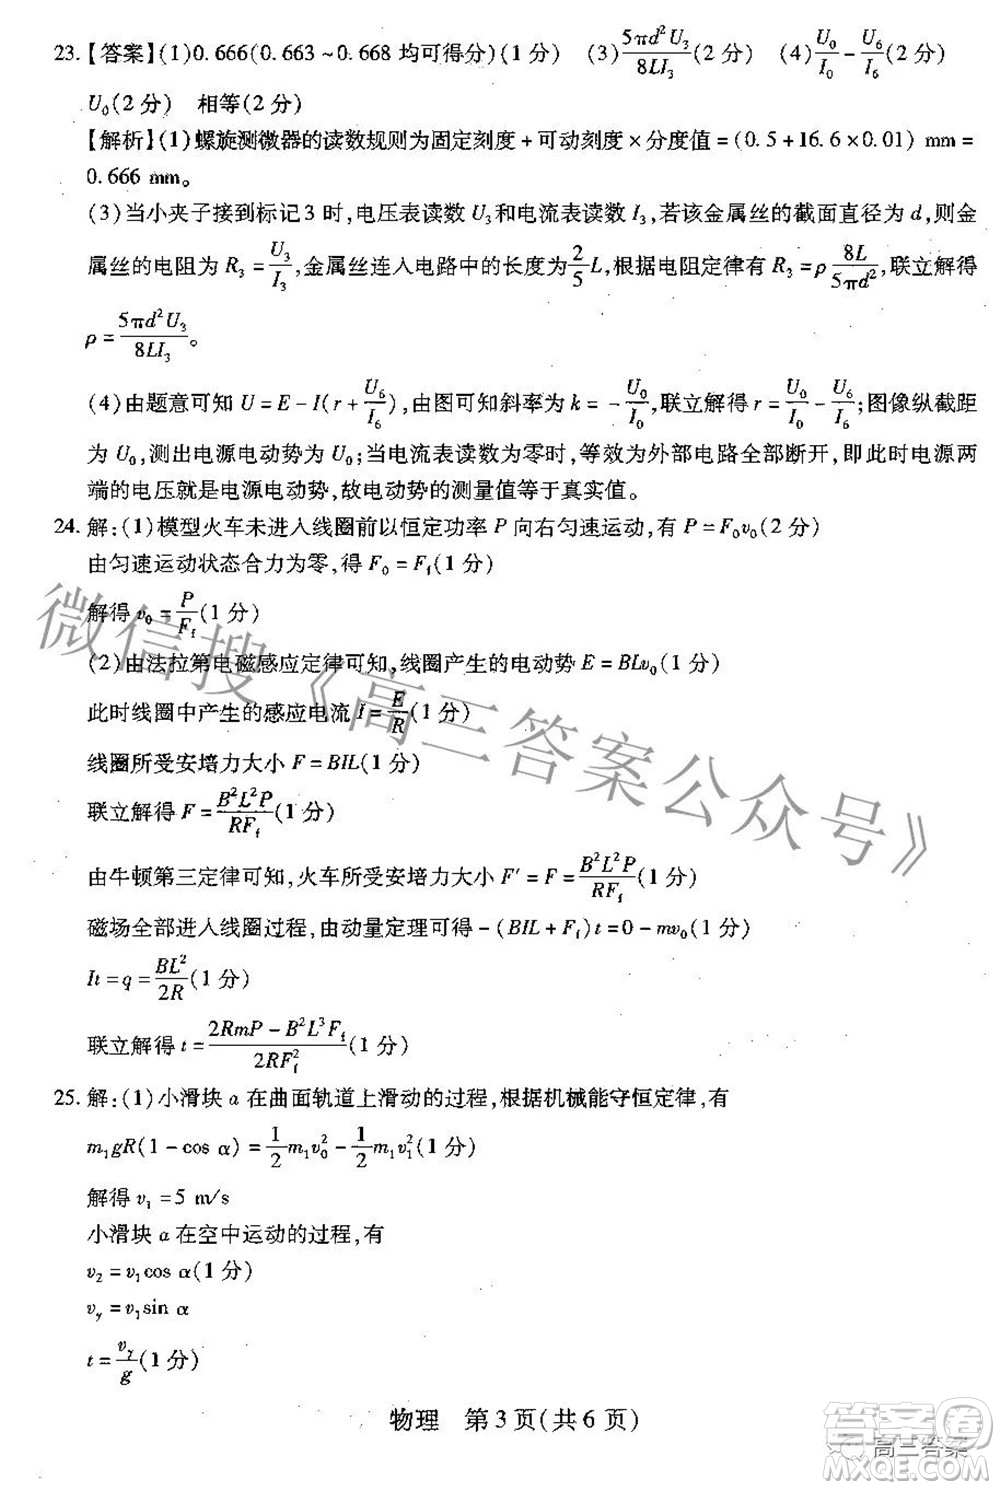 23.【答案】(1)0.666(0.663~0.668 均可得分)(1 分) (3)5πd²U₃/8LI₃(2 分) (4)U₀/I₀-U₆/I₆(2 分)
U₀(2 分) 相等(2 分)
【解析】(1)螺旋测微器的读数规则为固定刻度+可动刻度×分度值=(0.5+16.6×0.01) mm=
0.666 mm。
(3)当小夹子接到标记3 时,电压表读数 U₃和电流表读数 I₃,若该金属丝的截面直径为 d,则金
属丝的电阻为 R₃=U₃/I₃,金属丝连入电路中的长度为2/5L,根据电阻定律有 R₃=ρ8L/5πd²,联立解得
ρ=5πd²U₃/8LI₃。
(4)由题意可知 U=E-I(r+U₆/I₆),由图可知斜率为 k=-U₀/I₀,联立解得 r=U₀/I₀-U₆/I₆;图像纵截距
为 U₀,测出电源电动势为 U₀;当电流表读数为零时,等效为外部电路全部断开,即此时电源两
端的电压就是电源电动势,故电动势的测量值等于真实值。
24.解:(1)模型火车未进入线圈前以恒定功率 P 向右匀速运动,有 P=F₀v₀(2 分)
由匀速运动状态合力为零,得 F₀=Ff(1 分)
解得 v₀=P/Ff(1 分)
(2)由法拉第电磁感应定律可知,线圈产生的电动势 E=BLv₀(1 分)
此时线圈中产生的感应电流 I=E/R(1 分)
线圈所受安培力大小 F=BIL(1 分)
联立解得 F=B²L²P/RFf(1 分)
由牛顿第三定律可知,火车所受安培力大小 F′=F=B²L²P/RFf(1 分)
磁场全部进入线圈过程,由动量定理可得-(BIL+Ff)t=0-mv₀(1 分)
It=q=BL²/2R(1 分)
联立解得 t=2RmP-B²L³Ff/2RFf²(1 分)
25.解:(1)小滑块 a 在曲面轨道上滑动的过程,根据机械能守恒定律,有
m₁gR(1-cos α)=1/2m₁v₀²-1/2m₁v₁²(1 分)
解得 v₁=5 m/s
小滑块 a 在空中运动的过程,有
v₂=v₁cos α(1 分)
vy=v₁sin α
t=vy/g(1 分)
物理 第 3 页(共 6 页)
微信搜《高三答案公众号》
答案圈
高三答案
MXQE.COM